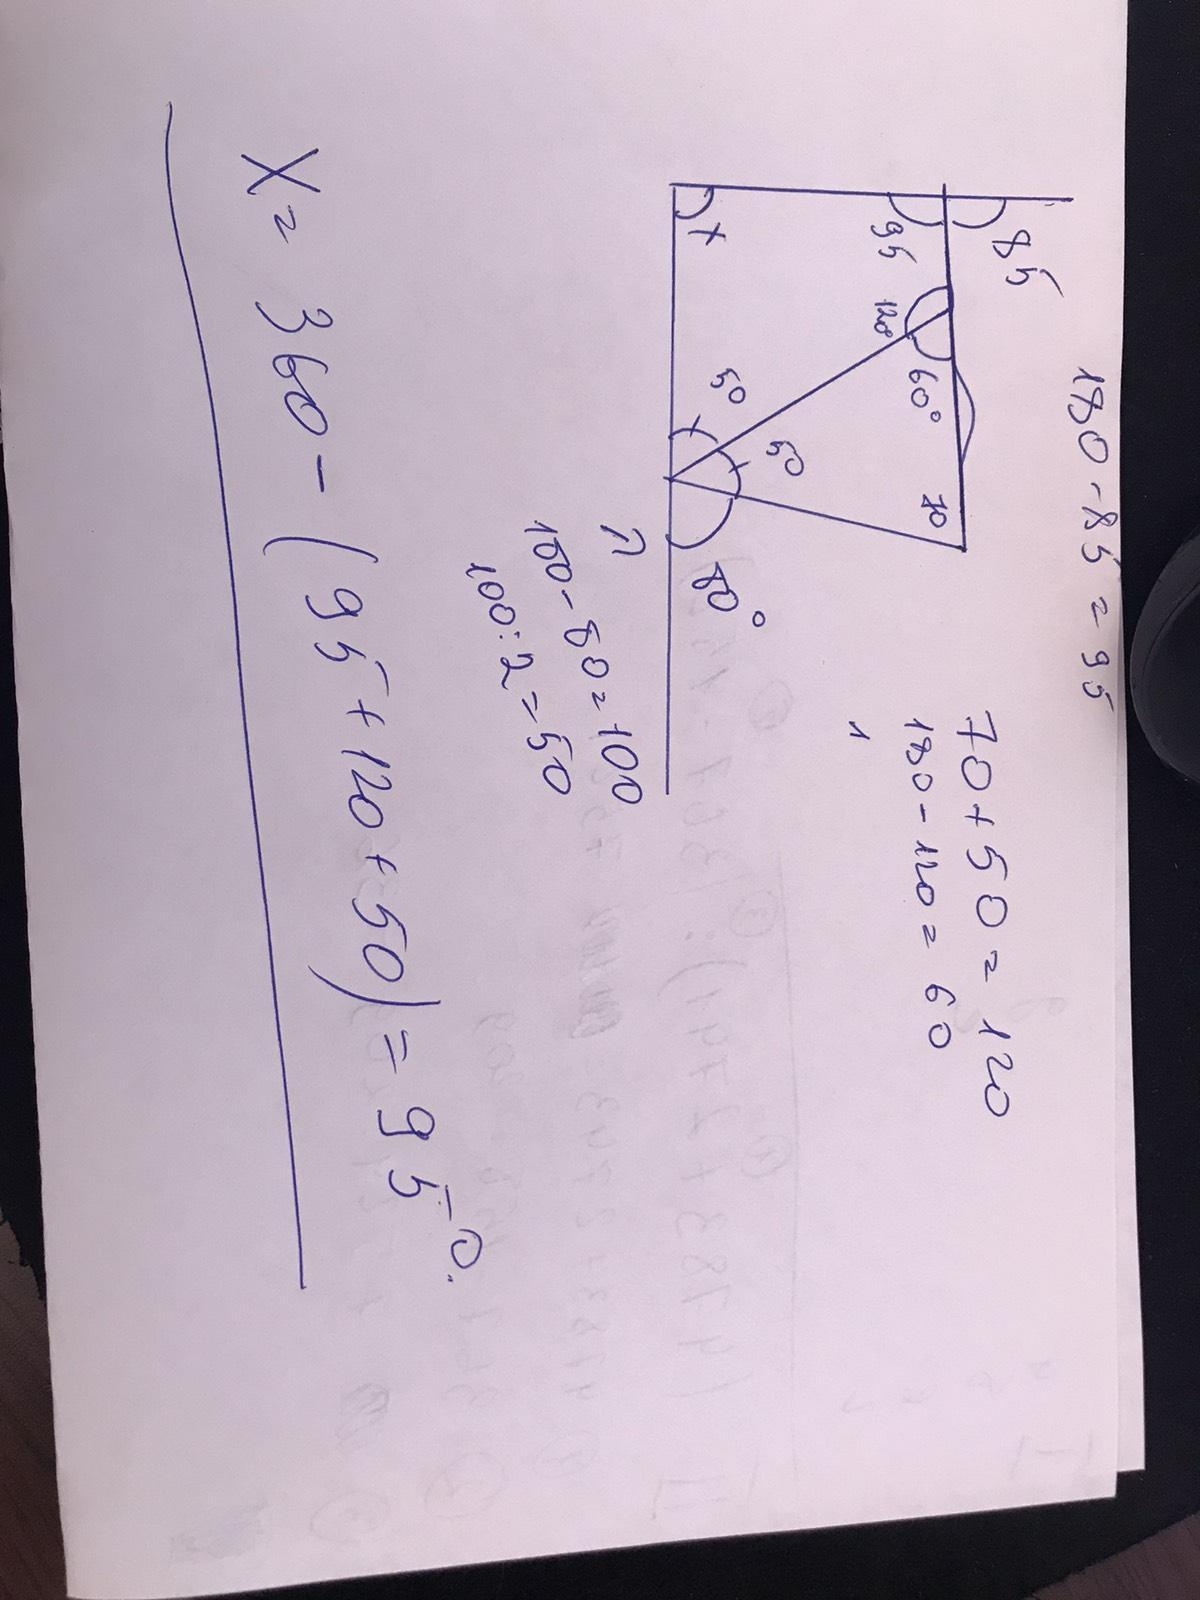 180 - 85 = 95
85
95
x
120
60°
70
50
50
80°
70 + 50 = 120
180 - 120 = 60
180 - 80 = 100
100 : 2 = 50
X = 360 - (95 + 120 + 50) = 95°.